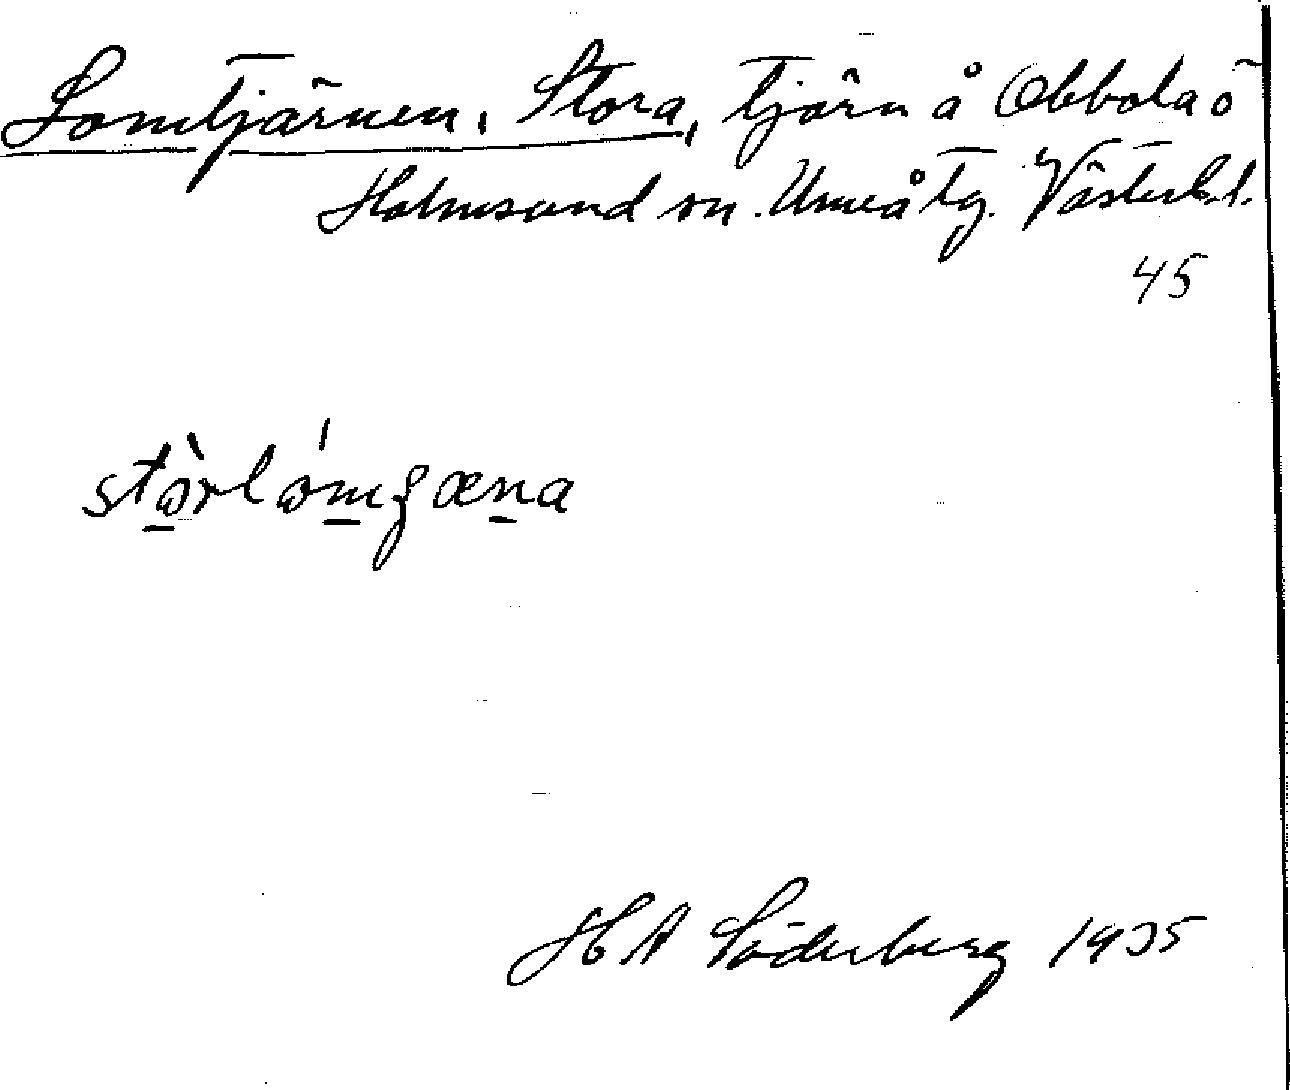 Lomtjärnen, Stora, tjärn å Obbola ö
Holmsund sn. Umeå tg. Västerb. l.
45
H A Söderberg 1935